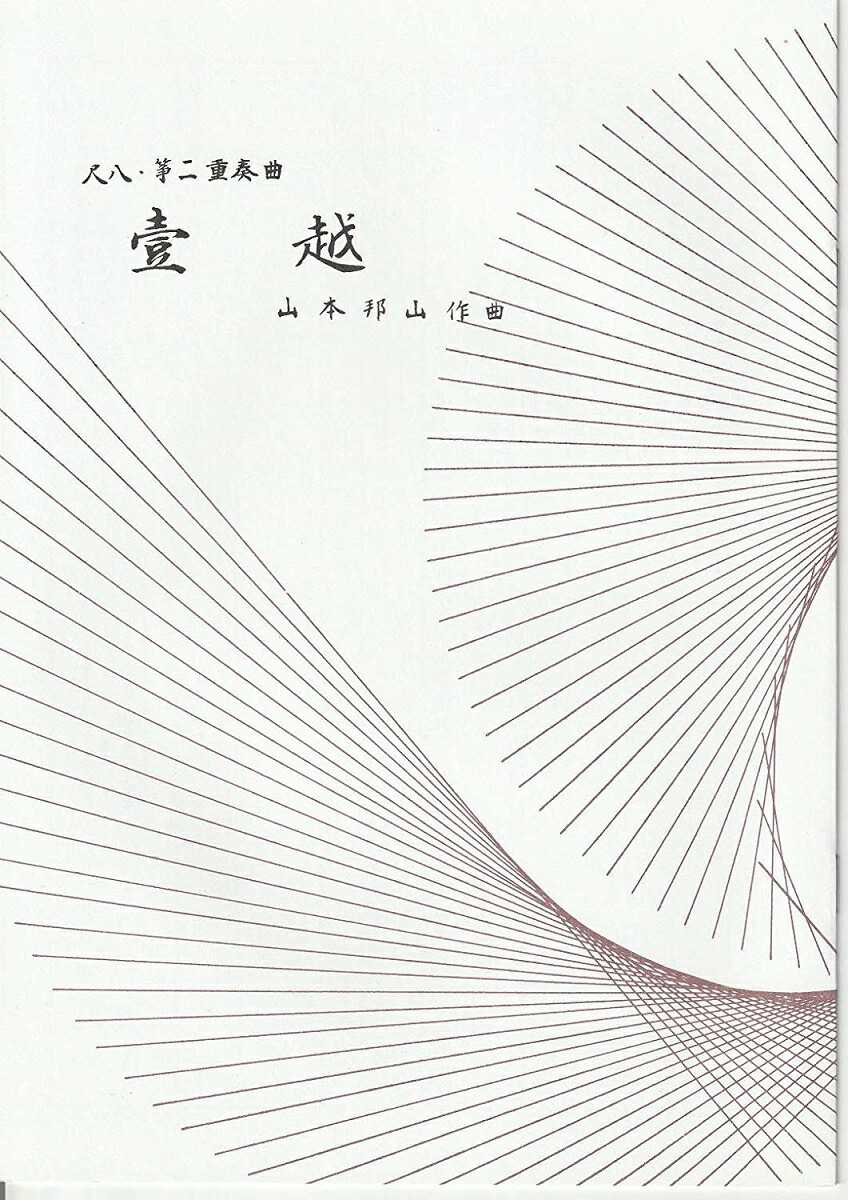 尺八・箏二重奏曲
壹越
山本邦山作曲